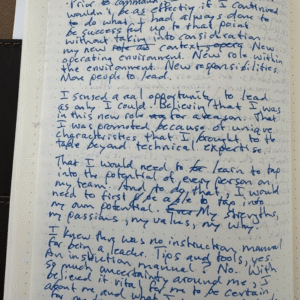 Prior to command
wouldn't be as effective if I continued
to do what I had always done to
be successful up to that point
without taking into consideration
my new context. New
operating environment. New role within
the environment. New responsibilities.
More people to lead.
I sensed a real opportunity to lead
as only I could. Believing that I was
in this new role for a reason. That
I was promoted because of unique
characteristics that I brought to the
table beyond technical expertise.
That I would need to learn to tap
into the potential of every person on
my team. And to do that, I would
need to first be able to tap into
my own potential. My strengths,
my passions, my values, my why.
I knew there was no instruction manual
for being a leader. Tips and tools, yes.
An instruction manual? No. With
so much uncertainty around me, I
believed it vital for me to be certain
about me and what I